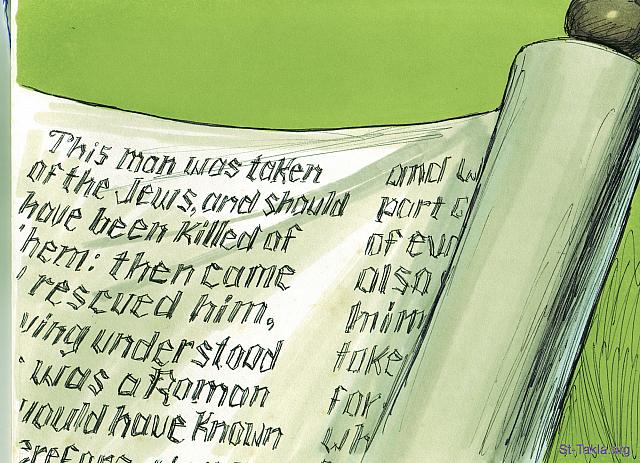 This man was taken
of the Jews, and should
have been killed of
hem: then came
rescued him,
ving understood
was a Roman
would have Known
erefore
and w
part
of
also
him
take
for
wh
St-Takla.org